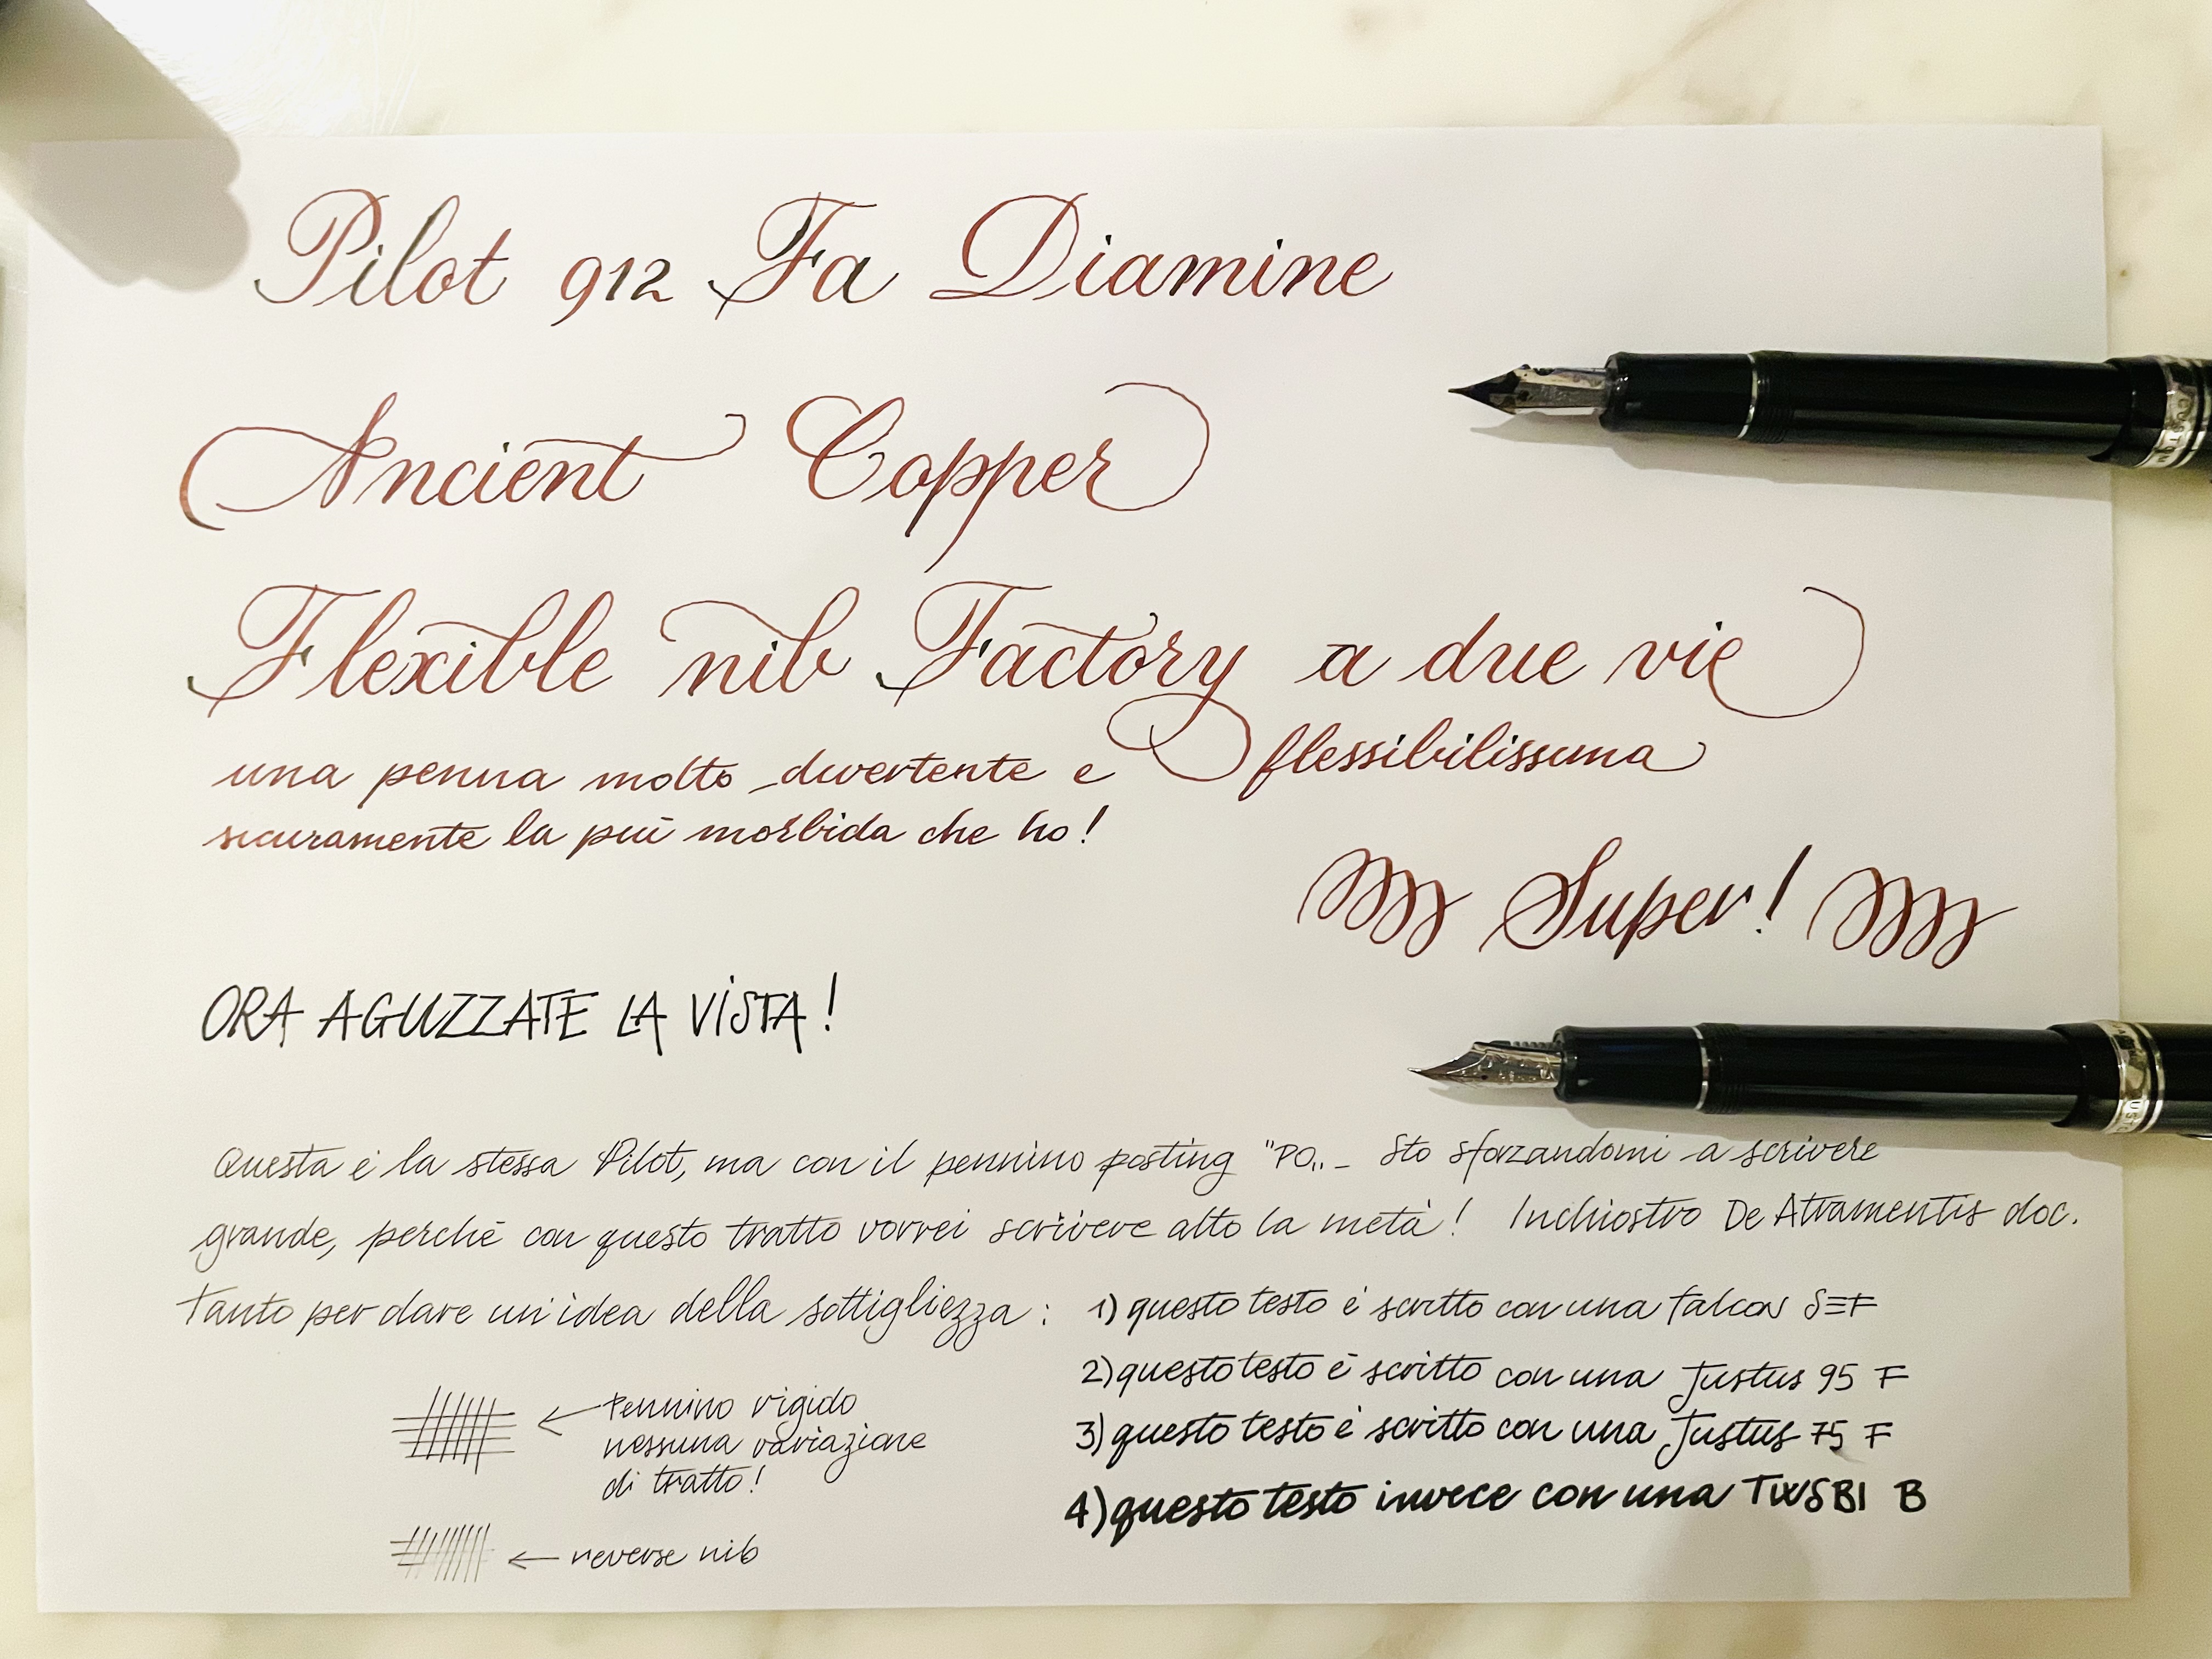 Pilot 912 Fa Diamine
Ancient Copper
Flexible nib Factory a due vie
una penna molto divertente e flessibilissima
sicuramente la più morbida che ho!
Super!
ORA AGUZZATE LA VISTA!
Questa è la stessa Pilot, ma con il pennino posting "PO„_ Sto sforzandomi a scrivere
grande, perchè con questo tratto vorrei scrivere alto la metà! Inchiostro De Atramentis doc.
Tanto per dare un'idea della sottigliezza:
1) questo testo è scritto con una falcon SEF
2) questo testo è scritto con una Justus 95 F
3) questo testo è scritto con una Justus 75 F
4) questo testo invece con una TWSBI B
← Pennino rigido
nessuna variazione
di tratto!
← reverse nib